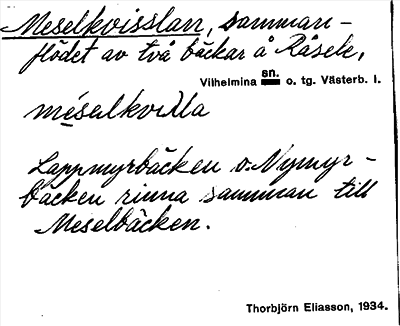 Meselkvisslan, samman-
flödet av två bäckar å Råsele,
Vilhelmina sn. o. tg. Västerb. l.
Lappmyrbäcken o. Nymyr-
bäcken rinna samman till
Meselbäcken.
Thorbjörn Eliasson, 1934.